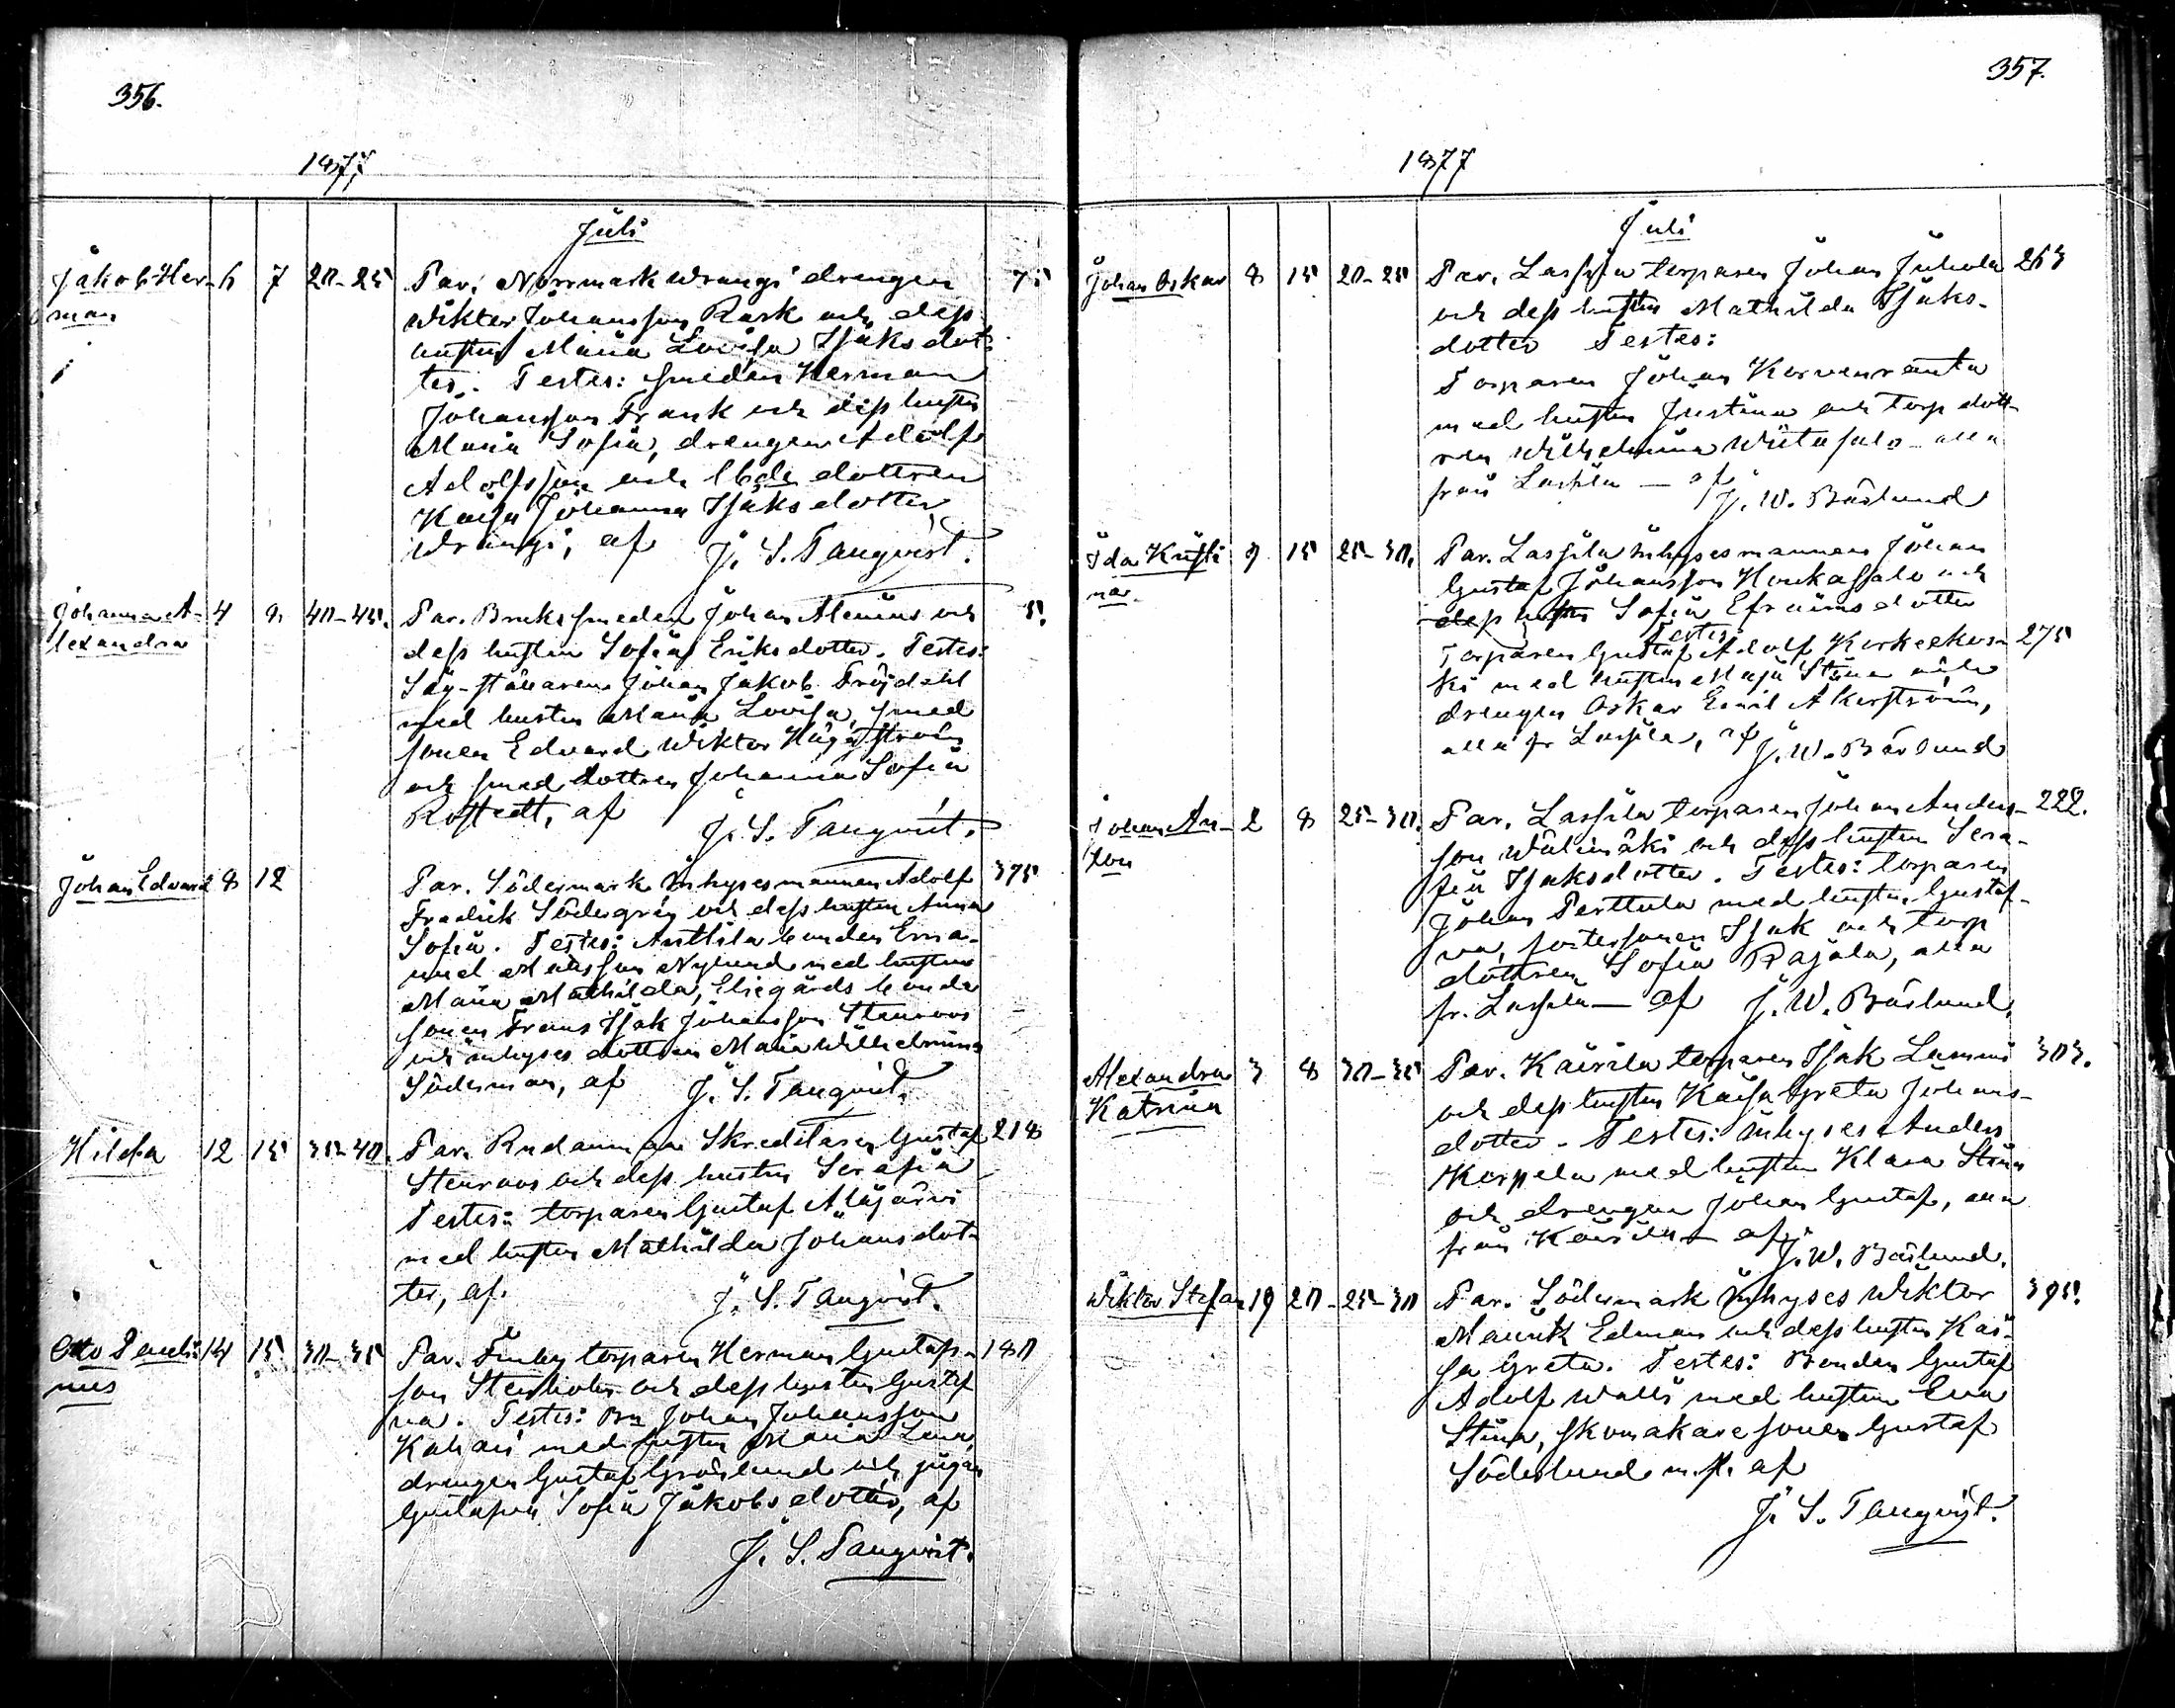 356.
1877
Juli
Jakob Her- 6 7 20-25 Par. Norrmark Wrangi drengen 75
man Wiktor Johansson Rask och dess
hustru Maria Lovisa Isaksdot-
ter. Testes: smeden Herman
Johansson Frank och dess hustru
Maria Sofia, drengen Adolf
Adolfsson och dottren
Kaisa Johanna Isaksdotter
Wrangi, af J. S. Tanqvist.
Johanna A- 4 8 40-45. Par. Bruks smeden Johan Alenius och 5.
lexandra dess hustru Sofia Eriksdotter. Testes:
Såg-ställaren Johan Jakob Fröjdahl
med hustru Maria Lovisa, smed
sonen Edvard Wiktor Hägström
och smed dottren Johanna Sofia
Rostedt, af
J. S. Tanqvist.
Johan Edvard 8 12 Par. Södermark inhysesmannen Adolf 375
Fredrik Södergrén och dess hustru Anna
Sofia. Testes: Anttila bonden Ema-
nuel Mattsson Nylund med hustru
Maria Mathilda, Eliegårds bonde
sonen Frans Isak Johansson Stenroos
och inhyses dottren Maria Wilhelmina
Söderman, af J. S. Tanqvist.
Hilda 12 15 35-40. Par. Rudanmaa Skreddaren Gustaf 218
Stenroos och dess hustru Serafia
Testes: torparen Gustaf Alajärvi
med hustru Mathilda Johansdot-
ter, af. J. S. Tanqvist.
Otto 14 15. 30-35 Par. Finby torparen Herman Gustafs- 180
nus son Stenholm och dess hustru Gustaf
va. Testes: Johan Johansson
Kahari med hustru Maria Lena,
drengen Gustaf Grönlund och pigan
Gustafva Sofia Jakobsdotter, af
J. S. Tanqvist.
357.
1877
Juli
Johan Oskar 8 15 20-25 Par. Lassila torparen Johan Juhola 263
och dess hustru Mathilda Isaks-
dotter Testes:
Torparen Johan Korvenranta
med hustru Justina och torp dott-
ren Wilhelmina Wiitasalo alla
från Lassila — af
J. W. Båslund
Ida Kristi- 9 15 25-30. Par. Lassila inhysesmannen Johan
na. Gustaf Johansson Honkasalo och
dess hustru Sofia Efraimsdotter
Testes
Torparen Gustaf Adolf Korkeekos- 275
ki med hustru Maja Stina och
drengen Oskar Emil Akerström,
alla fr Lassila, af J. W. Båslund
Johan An- 2 8 25-30. Par. Lassila torparen Johan Anders- 222.
ton son Wälimäki och dess hustru Sera-
fia Isaksdotter. Testes: torparen
Johan Perttula med hustru Gustaf-
va, fostersonen Isak och torp
dottren Sofia Rajala, alla
fr. Lassila — af J. W. Båslund.
Alexandra 3 8 30-35 Par. Kairila torparen Isak Lammi 303.
Katrina och dess hustru Kaisa Greta Johans-
dotter. Testes: inhyses Anders
Korpela med hustru Klara Stina
och drengen Johan Gustaf, alla
från Kairila — af
J. W. Båslund.
Wiktor Stefan 19 20 - 25-30 Par. Södermark inhyses Wiktor 395.
Maurits Edman och dess hustru Kai-
sa Greta. Testes: Bonden Gustaf
Adolf Walli med hustru Eva
Stina, skomakare sonen Gustaf
Söderlund m. fl. af
J. S. Tanqvist.